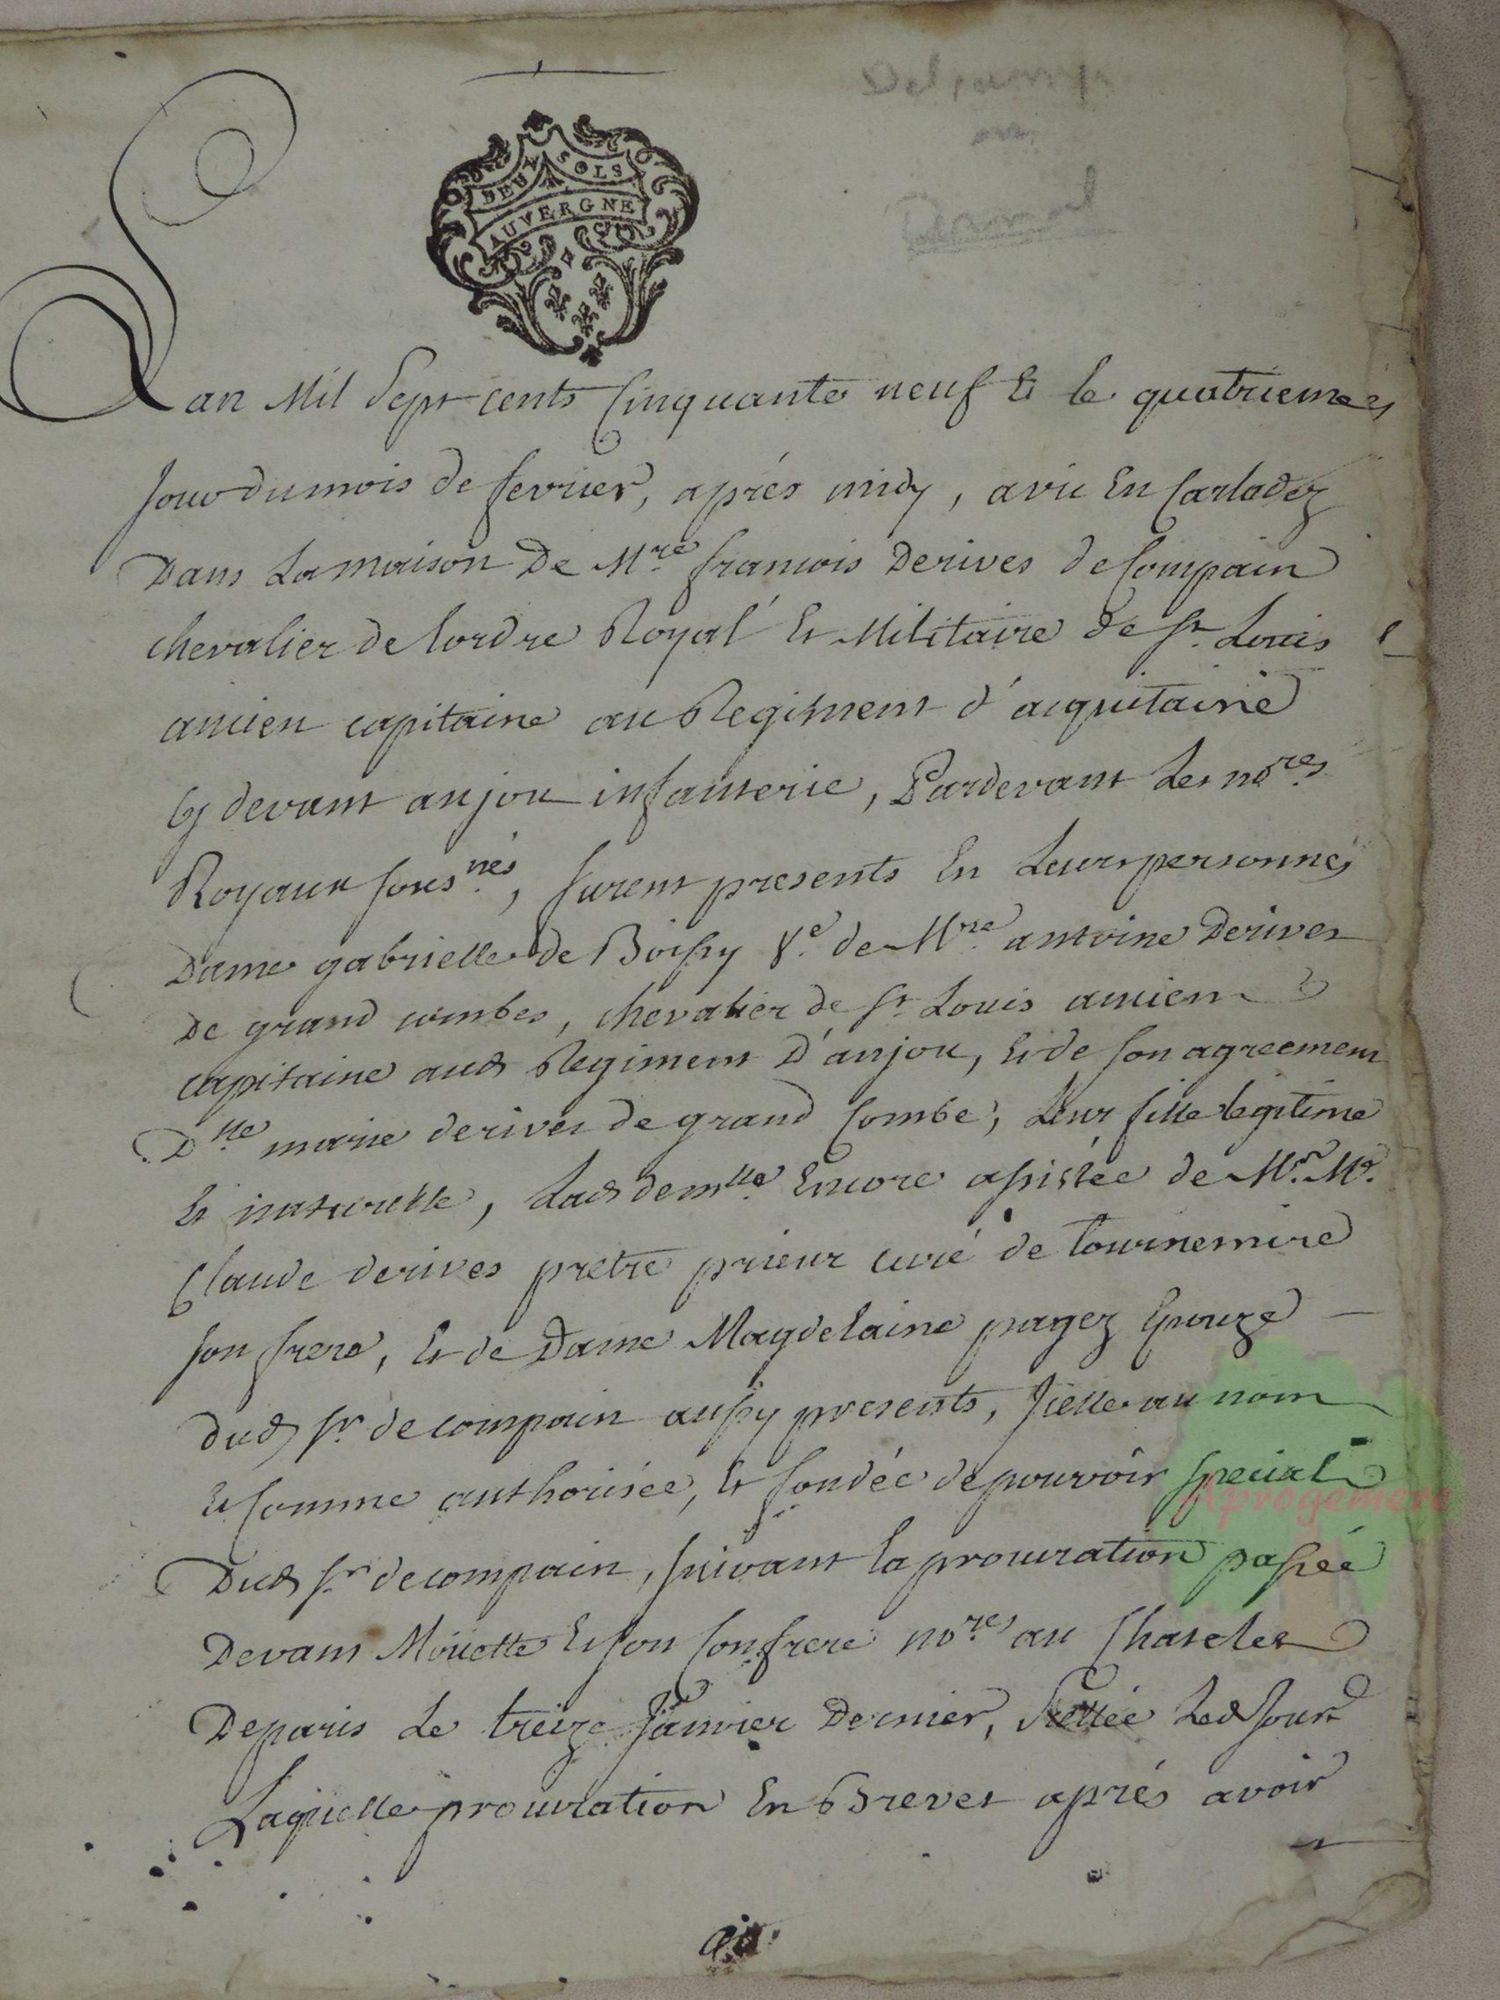 DEUX SOLS
AUVERGNE
Lan Mil Sept cents Cinquante neuf Et le quatrieme
Jour du mois de fevrier, aprés midy, a vic En Carladez
Dans La maison De Mre françois Derives de Compain
chevalier de lordre Royal Et Militaire de St. Louis
ancien capitaine au Regiment d'acquitaine
Cy devant anjou infanterie, Pardevant Les nores
Royaux sousnés, furent presents En Leurs personnes
Dame gabrielle de Boissy Ve. de Mre antoine Derives
De grand combes, chevalier de St Louis ancien
capitaine aud Regiment D'anjou, Et de son agreement
Dlle marie derives de grand Combe, Leur fille legitime
Et naturelle, Lad demlle Encore assistée de Mr. Me.
Claude derives pretre prieur curé de tournemire
son frere, Et de Dame Magdelaine pagez Epouze
dud Sr de compain aussy presents, Icelle au nom
Et Comme authorisée, Et fondée de pouvoir special
Dud Sr de compain, suivant la procuration passée
Devant Moüette Et son Confrere nores au Chatelet
De paris Le treize Janvier Dernier, scellée Led Jour
Laquelle procuration En Brevet aprés avoir
Aprogemere